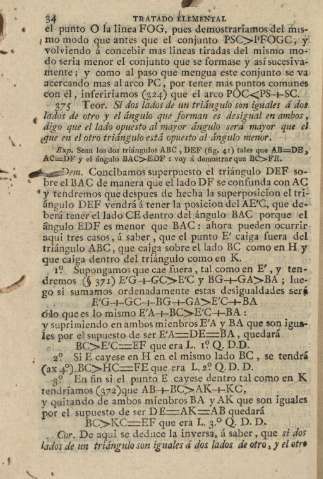 34 TRATADO ELEMENTAL
el punto O la linea FOG, pues demostraríamos del mis-
mo modo que antes que el conjunto PSC>PFOGC, y
volviendo á concebir mas lineas tiradas del mismo mo-
do seria menor el conjunto que se formase y así sucesiva-
mente; y como al paso que mengua este conjunto se va
acercando mas al arco PC, por tener mas puntos comunes
con él, inferiríamos (324) que el arco POC<PS+SC.
375 Teor. Si dos lados de un triángulo son iguales á dos
lados de otro y el ángulo que forman es desigual en ambos,
digo que el lado opuesto al mayor ángulo será mayor que el
que en el otro triángulo está opuesto al ángulo menor.
Exp. Sean los dos triángulos ABC, DEF (fig. 41) tales que AB=DE,
AC=DF y el ángulo BAC>EDF: voy á demostrar que BC>FE.
Dem. Concibamos superpuesto el triángulo DEF so-
bre el BAC de manera que el lado DF se confunda con AC
y tendremos que despues de hecha la superposicion el tri-
ángulo DEF vendrá á tener la posicion del AE'C, que de-
berá tener el lado CE dentro del ángulo BAC porque el
ángulo EDF es menor que BAC: ahora pueden ocurrir
aqui tres casos, á saber, que el punto E' caiga fuera del
triángulo ABC, que caiga sobre el lado BC como en H y
que caiga dentro del triángulo como en K.
1º Supongamos que cae fuera, tal como en E', y ten-
dremos (§ 371) E'G+GC>E'C y BG+GA>BA; lue-
go si sumamos ordenadamente estas desigualdades será
E'G+GC+BG+GA>E'C+BA
ó lo que es lo mismo E'A+BC>E'C+BA:
y suprimiendo en ambos mienbros E'A y BA que son igua-
les por el supuesto de ser E'A=DE=BA, quedará
BC>E'C=EF que era L. 1º Q. D. D.
2º Si E cayese en H en el mismo lado BC, se tendrá
(ax 4º) BC>HC=FE que era L. 2º Q. D. D.
3º En fin si el punto E cayese dentro tal como en K
tendríamos (372) que AB+BC>AK+KC,
y quitando de ambos mienbros BA y AK que son iguales
por el supuesto de ser DE=AK=AB quedará
BC>KC=EF que era L. 3º Q. D. D.
Cor. De aqui se deduce la inversa, á saber, que si dos
lados de un triángulo son iguales á dos lados de otro, y el otro